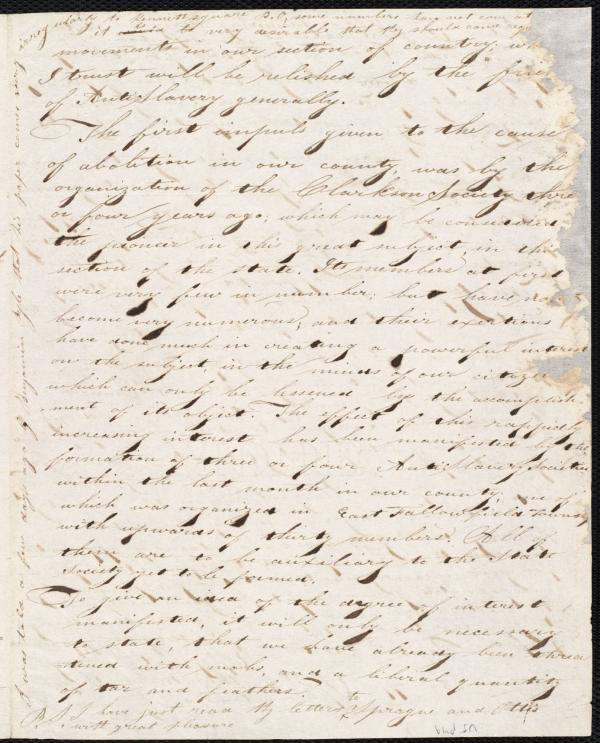 ularly to Kennett square P.O., some numbers have not come at
it is very desirable that they should come reg
movements in our section of country, wh
I trust will be relished by the frie
of Antislavery generally.
The first impuls given to the cause
of abolition in our county, was by the
organization of the Clarkson Society three
or four years ago; which may be considered
the pioneer in this great subject, in this
section of the state. Its members at first
were very few in number; but have no
become very numerous; and their exertions
have done much in creating a powerful interest
on the subject, in the minds of our citizen
which can only be lessened by the accomplish-
ment of its object. The effect of this rappidly
increasing interest has been manifested by the
formation of three or four AntiSlavery Societies
within the last month in our county, one of
which was organized in East Fallowfield Towns
with upwards of thirty members. All of
them are to be auxiliary to the State
Society yet to be formed.
To give an idea of the degree of interest
manifested, it will only be necessary
to state, that we have already been threa
tened with mobs, and a liberal quantity
of tar and feathers.
P.S. I have just read thy letters to Sprague and Otis
with great pleasure
that his paper comes very irreg